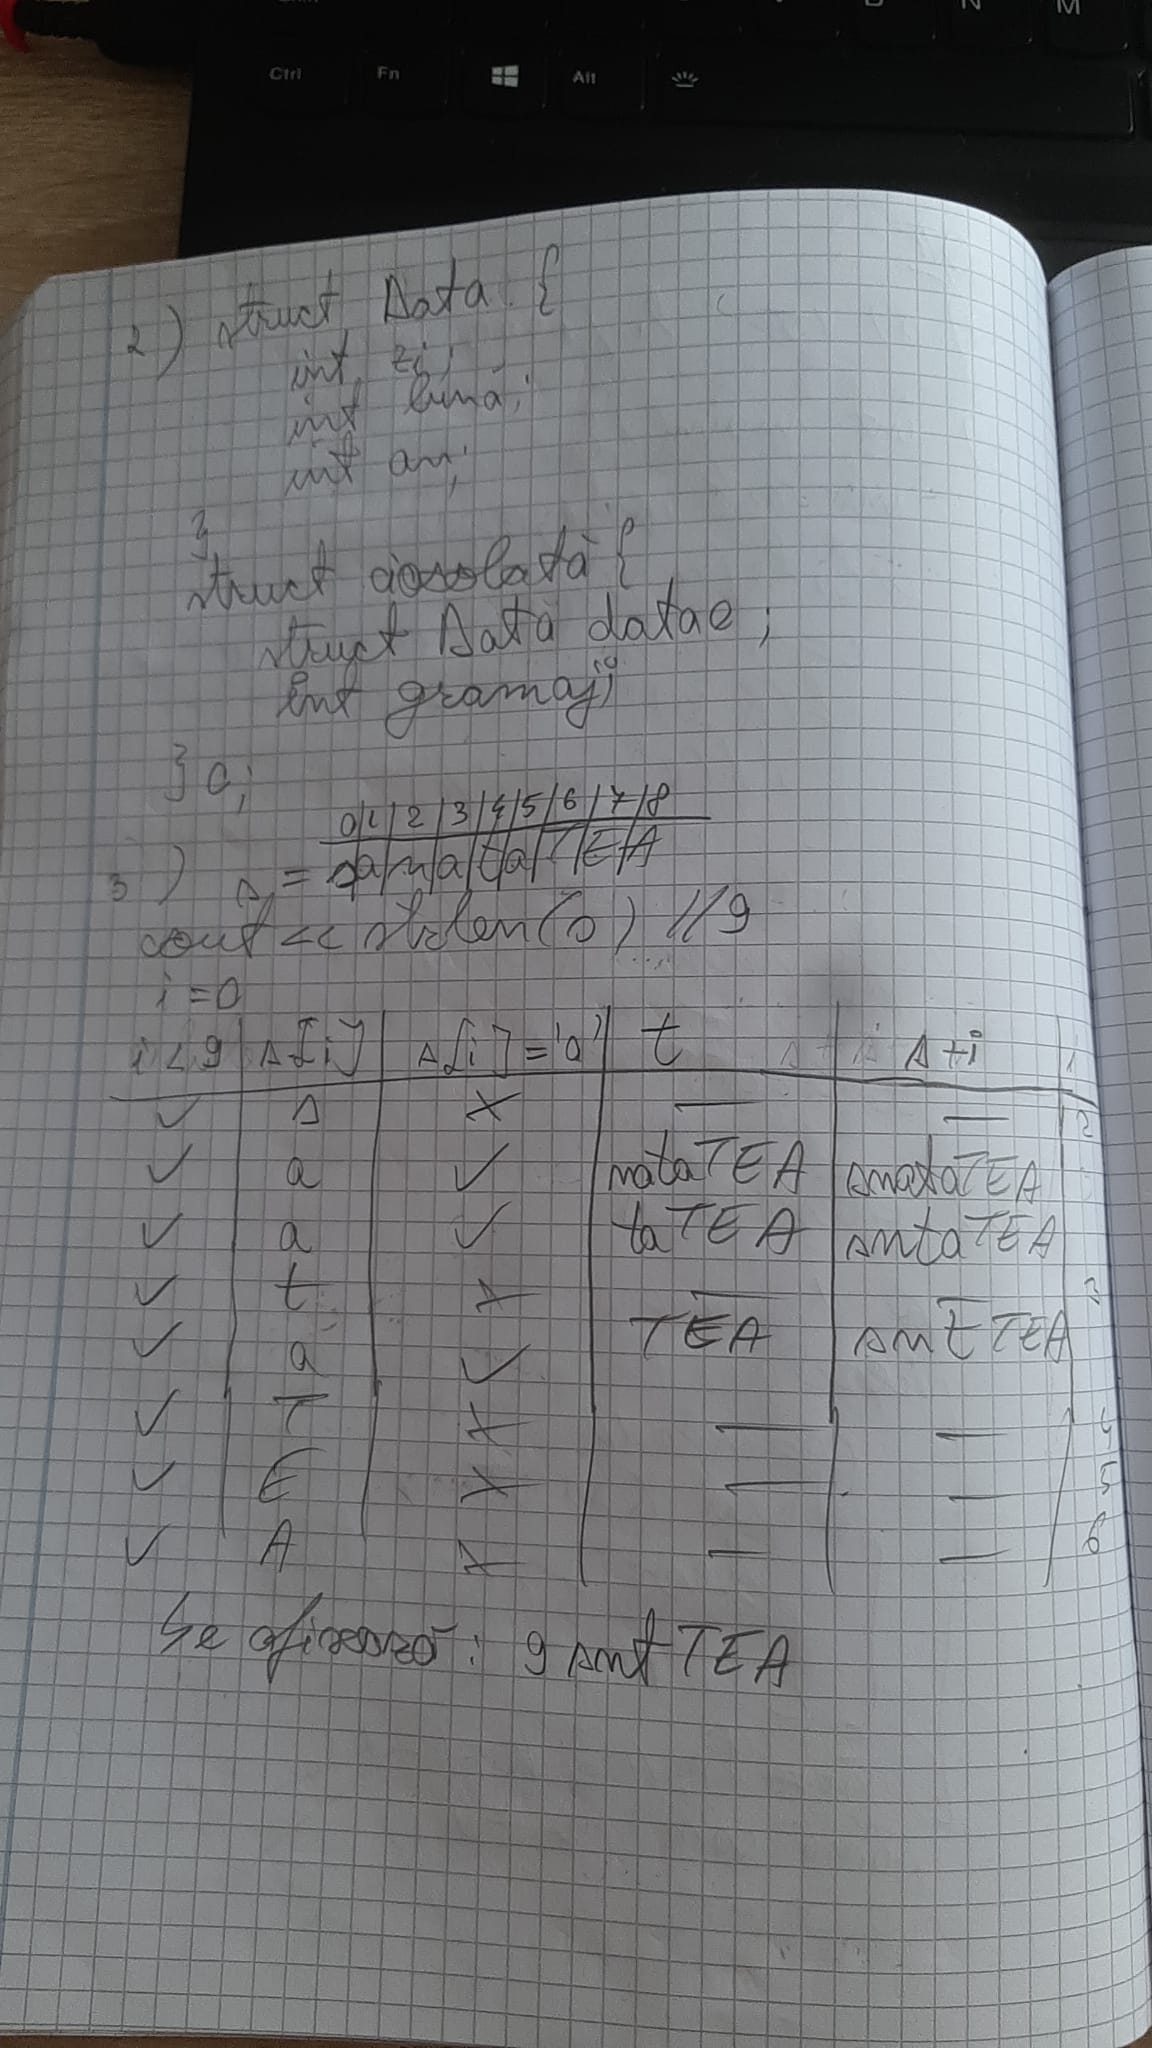 Ctrl Fn Alt N M
2) struct Data {
int zi;
int luna;
int an;
};
struct ciocolata {
struct Data datae;
int gramaj;
} c;
0|1|2|3|4|5|6|7|8
3) s = s|a|n|a|t|a|T|E|A
cout << strlen(s) // 9
i = 0
i < 9 | s[i] | s[i] = 'a' | t | s+i | i
✓ | s | × | — | —
✓ | a | ✓ | nataTEA | snataTEA | 2
✓ | a | ✓ | taTEA | sntaTEA
✓ | t | × | — | — | 3
✓ | a | ✓ | TEA | sntTEA
✓ | T | × | — | — | 4
✓ | E | × | — | — | 5
✓ | A | × | — | — | 6
Se afisează: 9 sntTEA